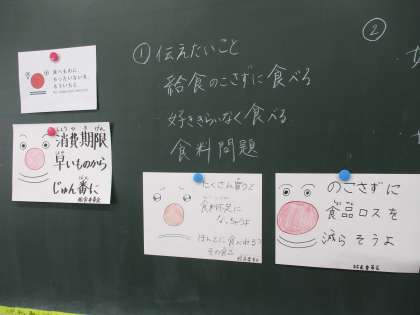 ① 伝えたいこと
給食のこさずに食べろ
好ききらいなく食べる
食料問題
②
食べものに、
もったいないを、
もういちど。
しょうひきげん
消費期限
早いものから
じゅん番に
給食委員会
たくさん買うと
食料不足に
なっちゃうよ
ほんとに食べれる?
その食品
給食委員会
のこさずに
食品ロスを
減らそうよ
給食委員会